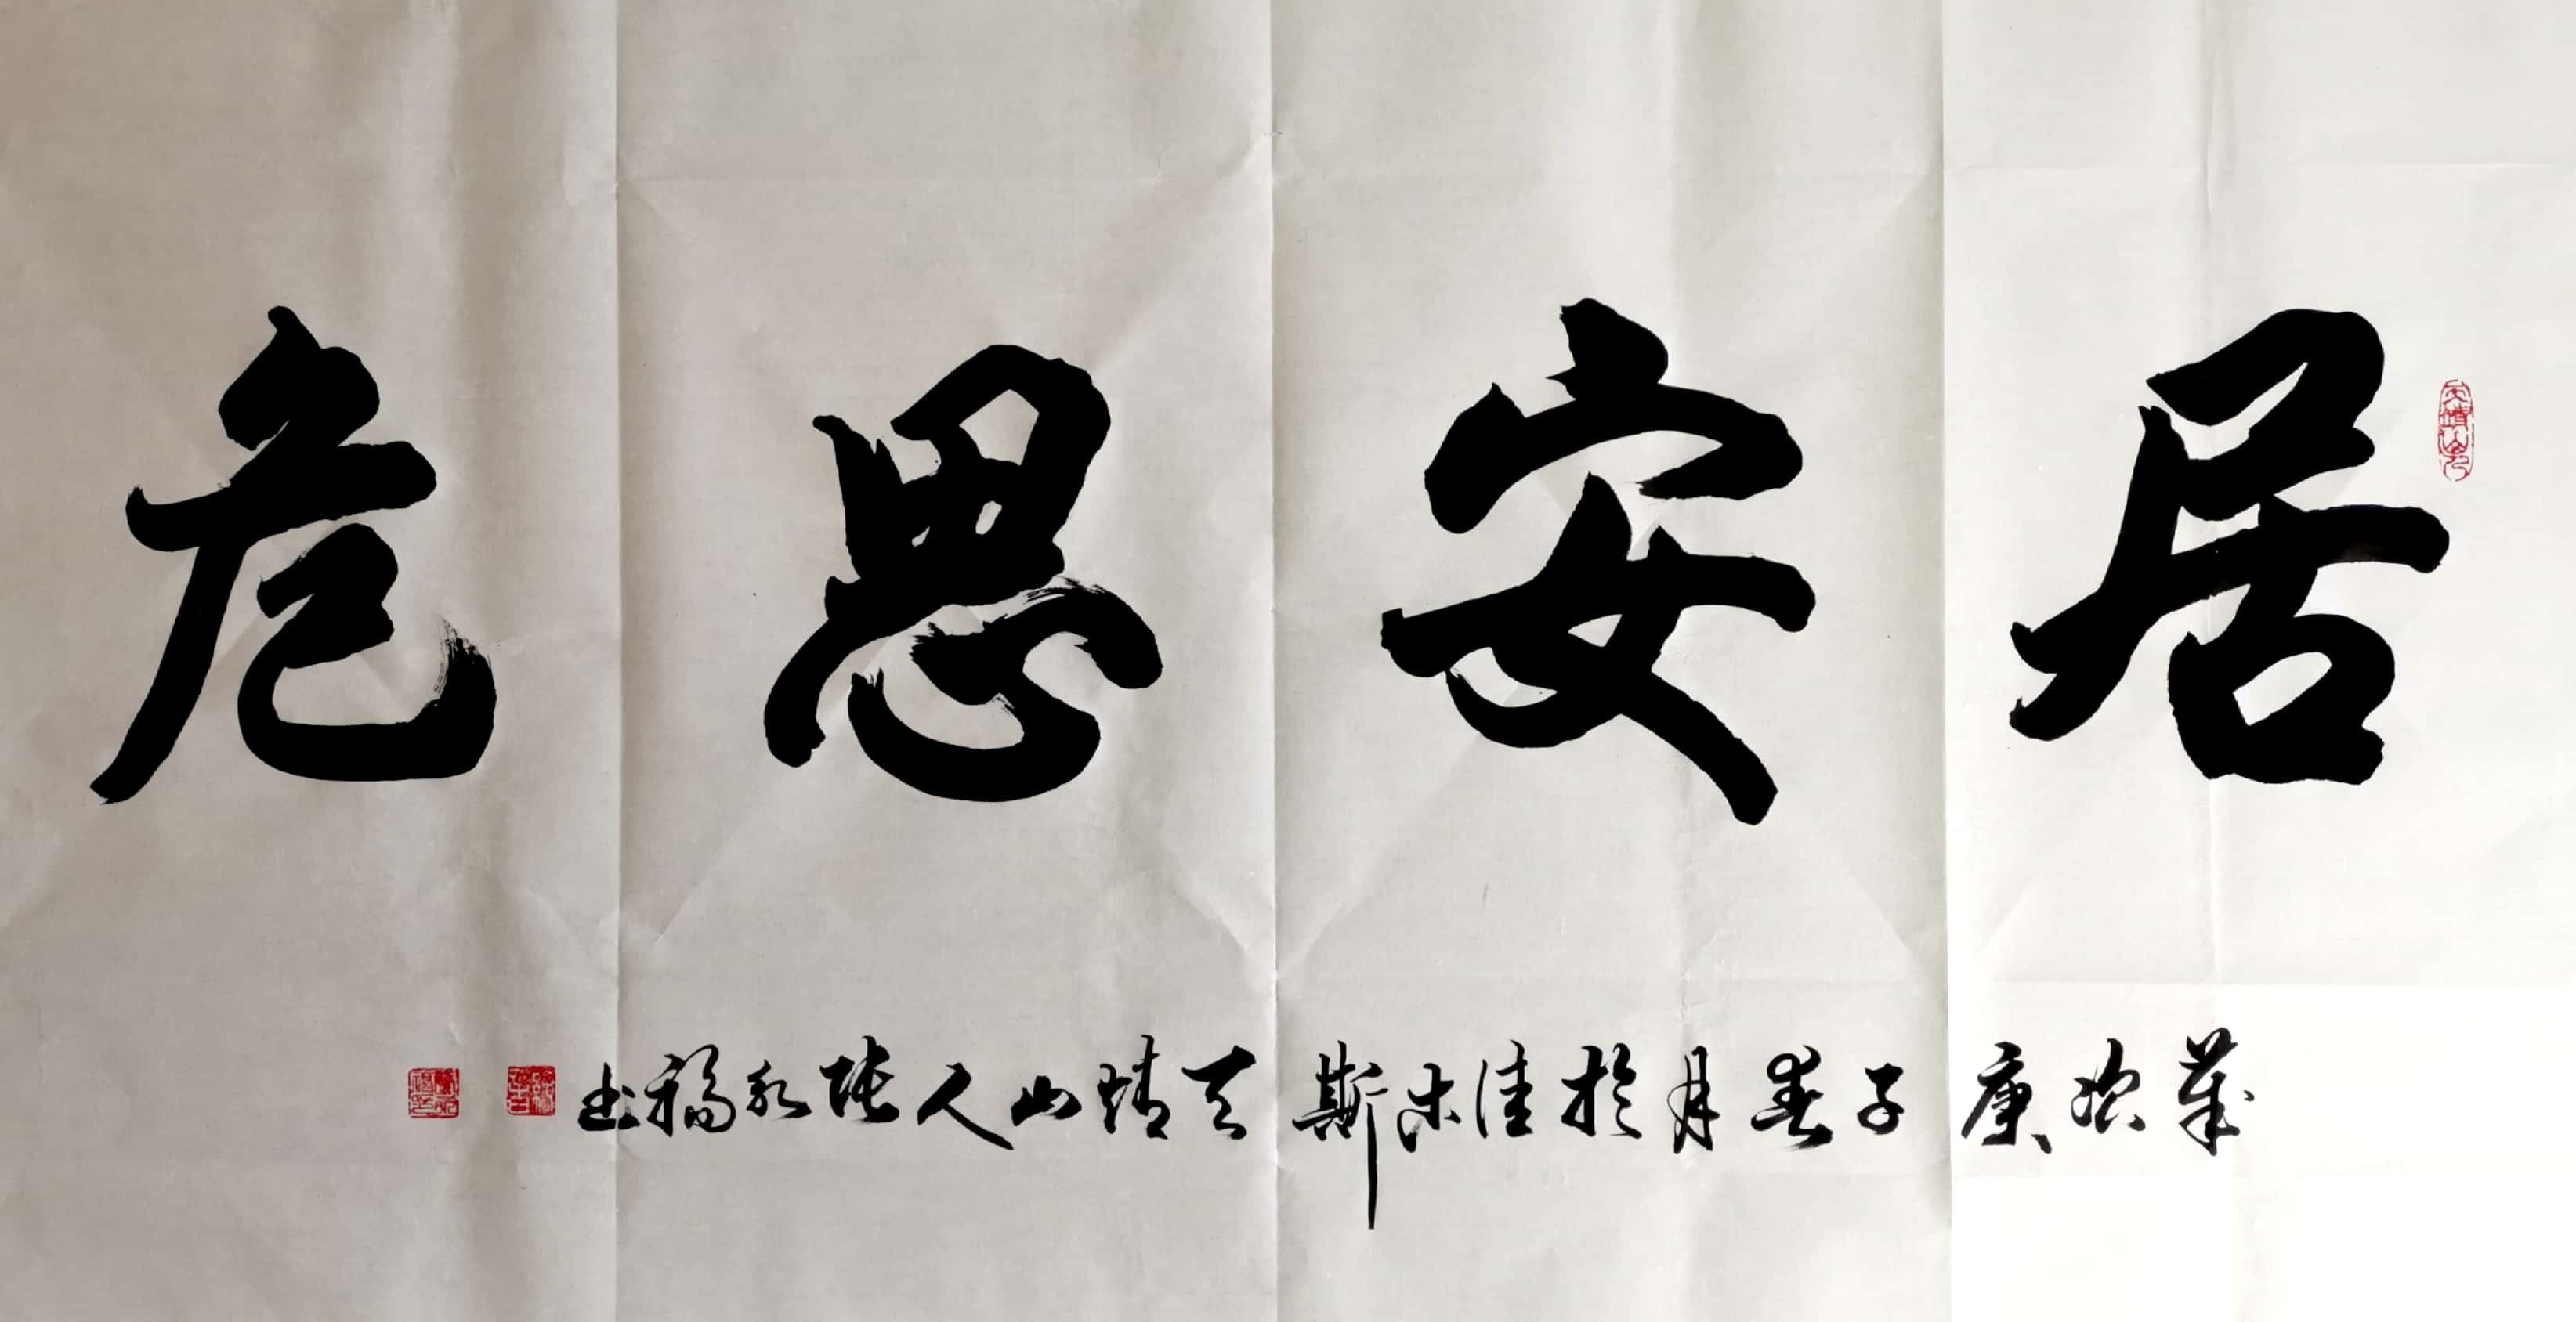 居安思危
岁次庚子春月於佳木斯天晴山人张永福书